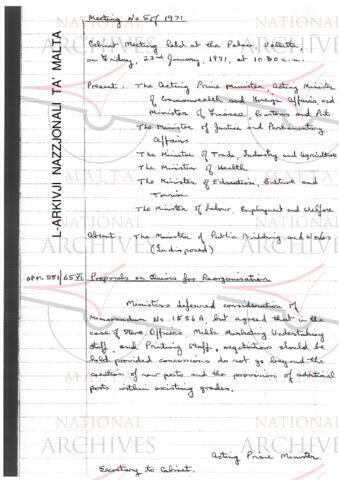 Meeting No 5 of 1971
Cabinet Meeting held at the Palace, Valletta,
on Friday, 22nd January, 1971, at 10.30 a.m.
Present: The Acting Prime Minister, Acting Minister
of Commonwealth and Foreign Affairs, and
Minister of Finance, Customs and Port
The Minister of Justice and Parliamentary
Affairs
The Minister of Trade, Industry and Agriculture
The Minister of Health
The Minister of Education, Culture and
Tourism
The Minister of Labour, Employment and Welfare
Absent: The Minister of Public Building and Works
(Indisposed)
OPM 551/65 Proposals or Claims for Reorganisation
Ministers deferred consideration of
Memorandum No 1556A, but agreed that in the
case of Store Officers, Milk Marketing Undertaking
Staff, and Printing Staff, negotiations should be
held provided concessions do not go beyond the
creation of new posts and the provision of additional
posts within existing grades.
Acting Prime Minister.
Secretary to Cabinet.
L-ARKIVJI NAZZJONALI TA' MALTA
NATIONAL
ARCHIVES
MALTA